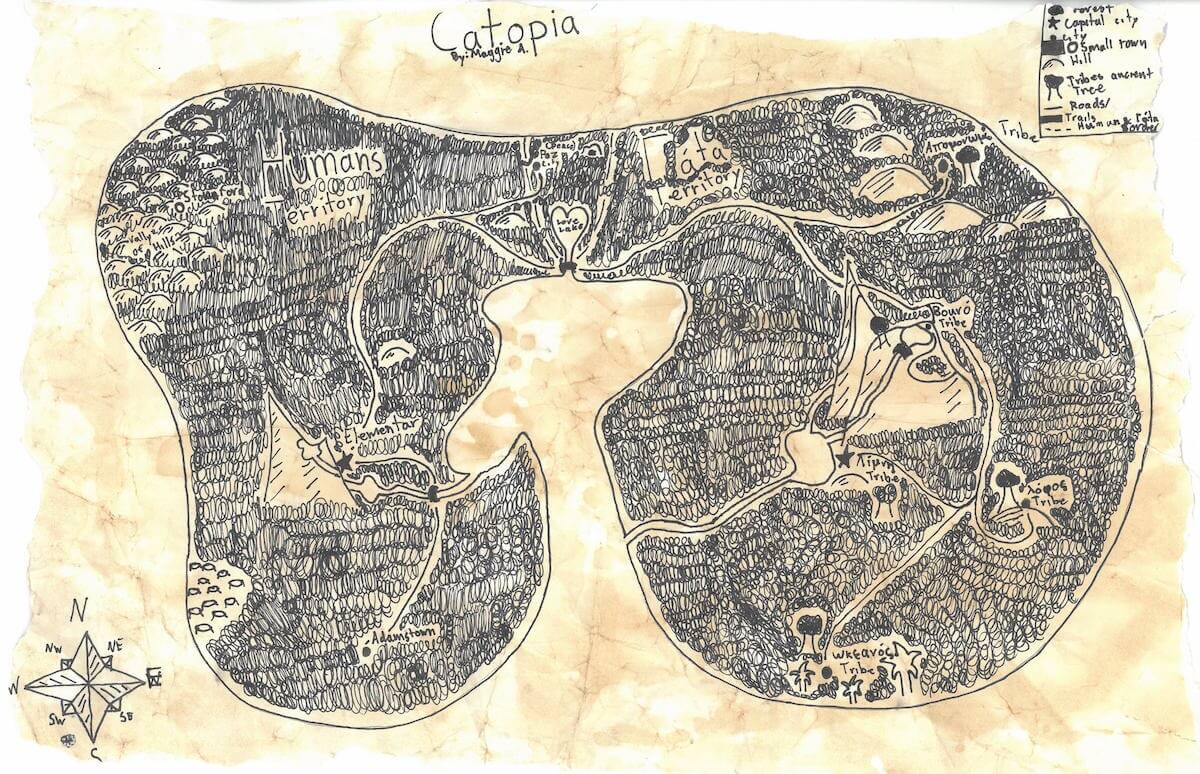 Catopia
By: Maggie A.
Forest
Capital city
City
Small town
Hill
Tribes ancient
Tree
Roads/
Trails
Border
Humans
Territory
(Peace)
Paz
city
Love
Lake
Territory
Tribe
Valley
of
Hills
Βουνό
Tribe
Elementar
Λίμνη
Tribe
λόφος
Tribe
Adamstown
Ωκεανός
Tribe
N
NW
NE
W
E
SW
SE
S